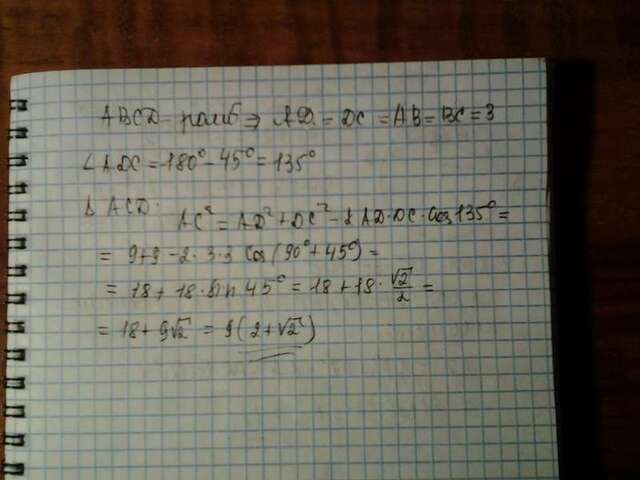 ABCD - ромб ⇒ AD = DC = AB = BC = 3
∠ADC = 180° - 45° = 135°
Δ ACD: AC² = AD² + DC² - 2 AD·DC·Cos 135° =
= 9+9 - 2·3·3 Cos(90° + 45°) =
= 18 + 18·Sin 45° = 18 + 18·√2/2 =
= 18 + 9√2 = 9(2+√2)